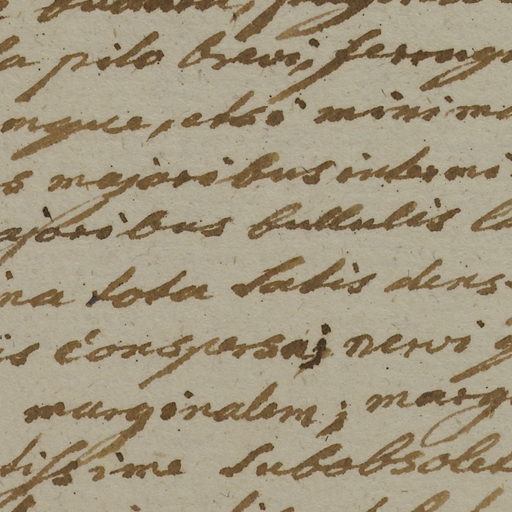 a pilo brevi, ferrug
mque, etsi minima
s majoribus intermi
ajoribus bullulis la
ina tota satis dens
is conspersa; nervi
marginalem; marg
tissime subobsolet